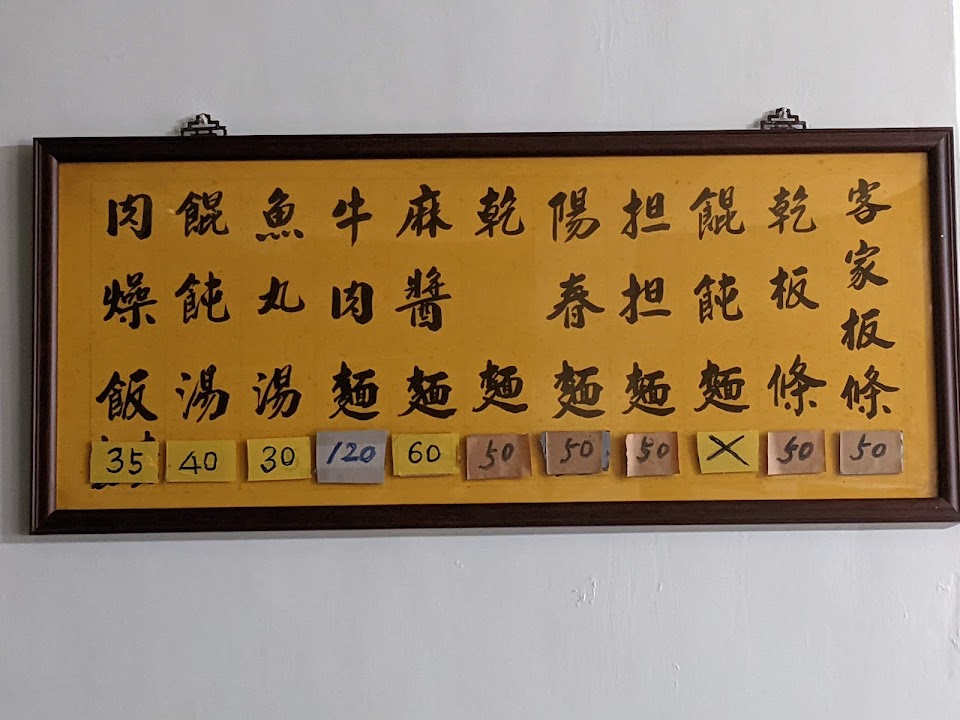 客家板條 50
乾板條 50
餛飩麵 X
担担麵 50
陽春麵 50
乾麵 50
麻醬麵 60
牛肉麵 120
魚丸湯 30
餛飩湯 40
肉燥飯 35